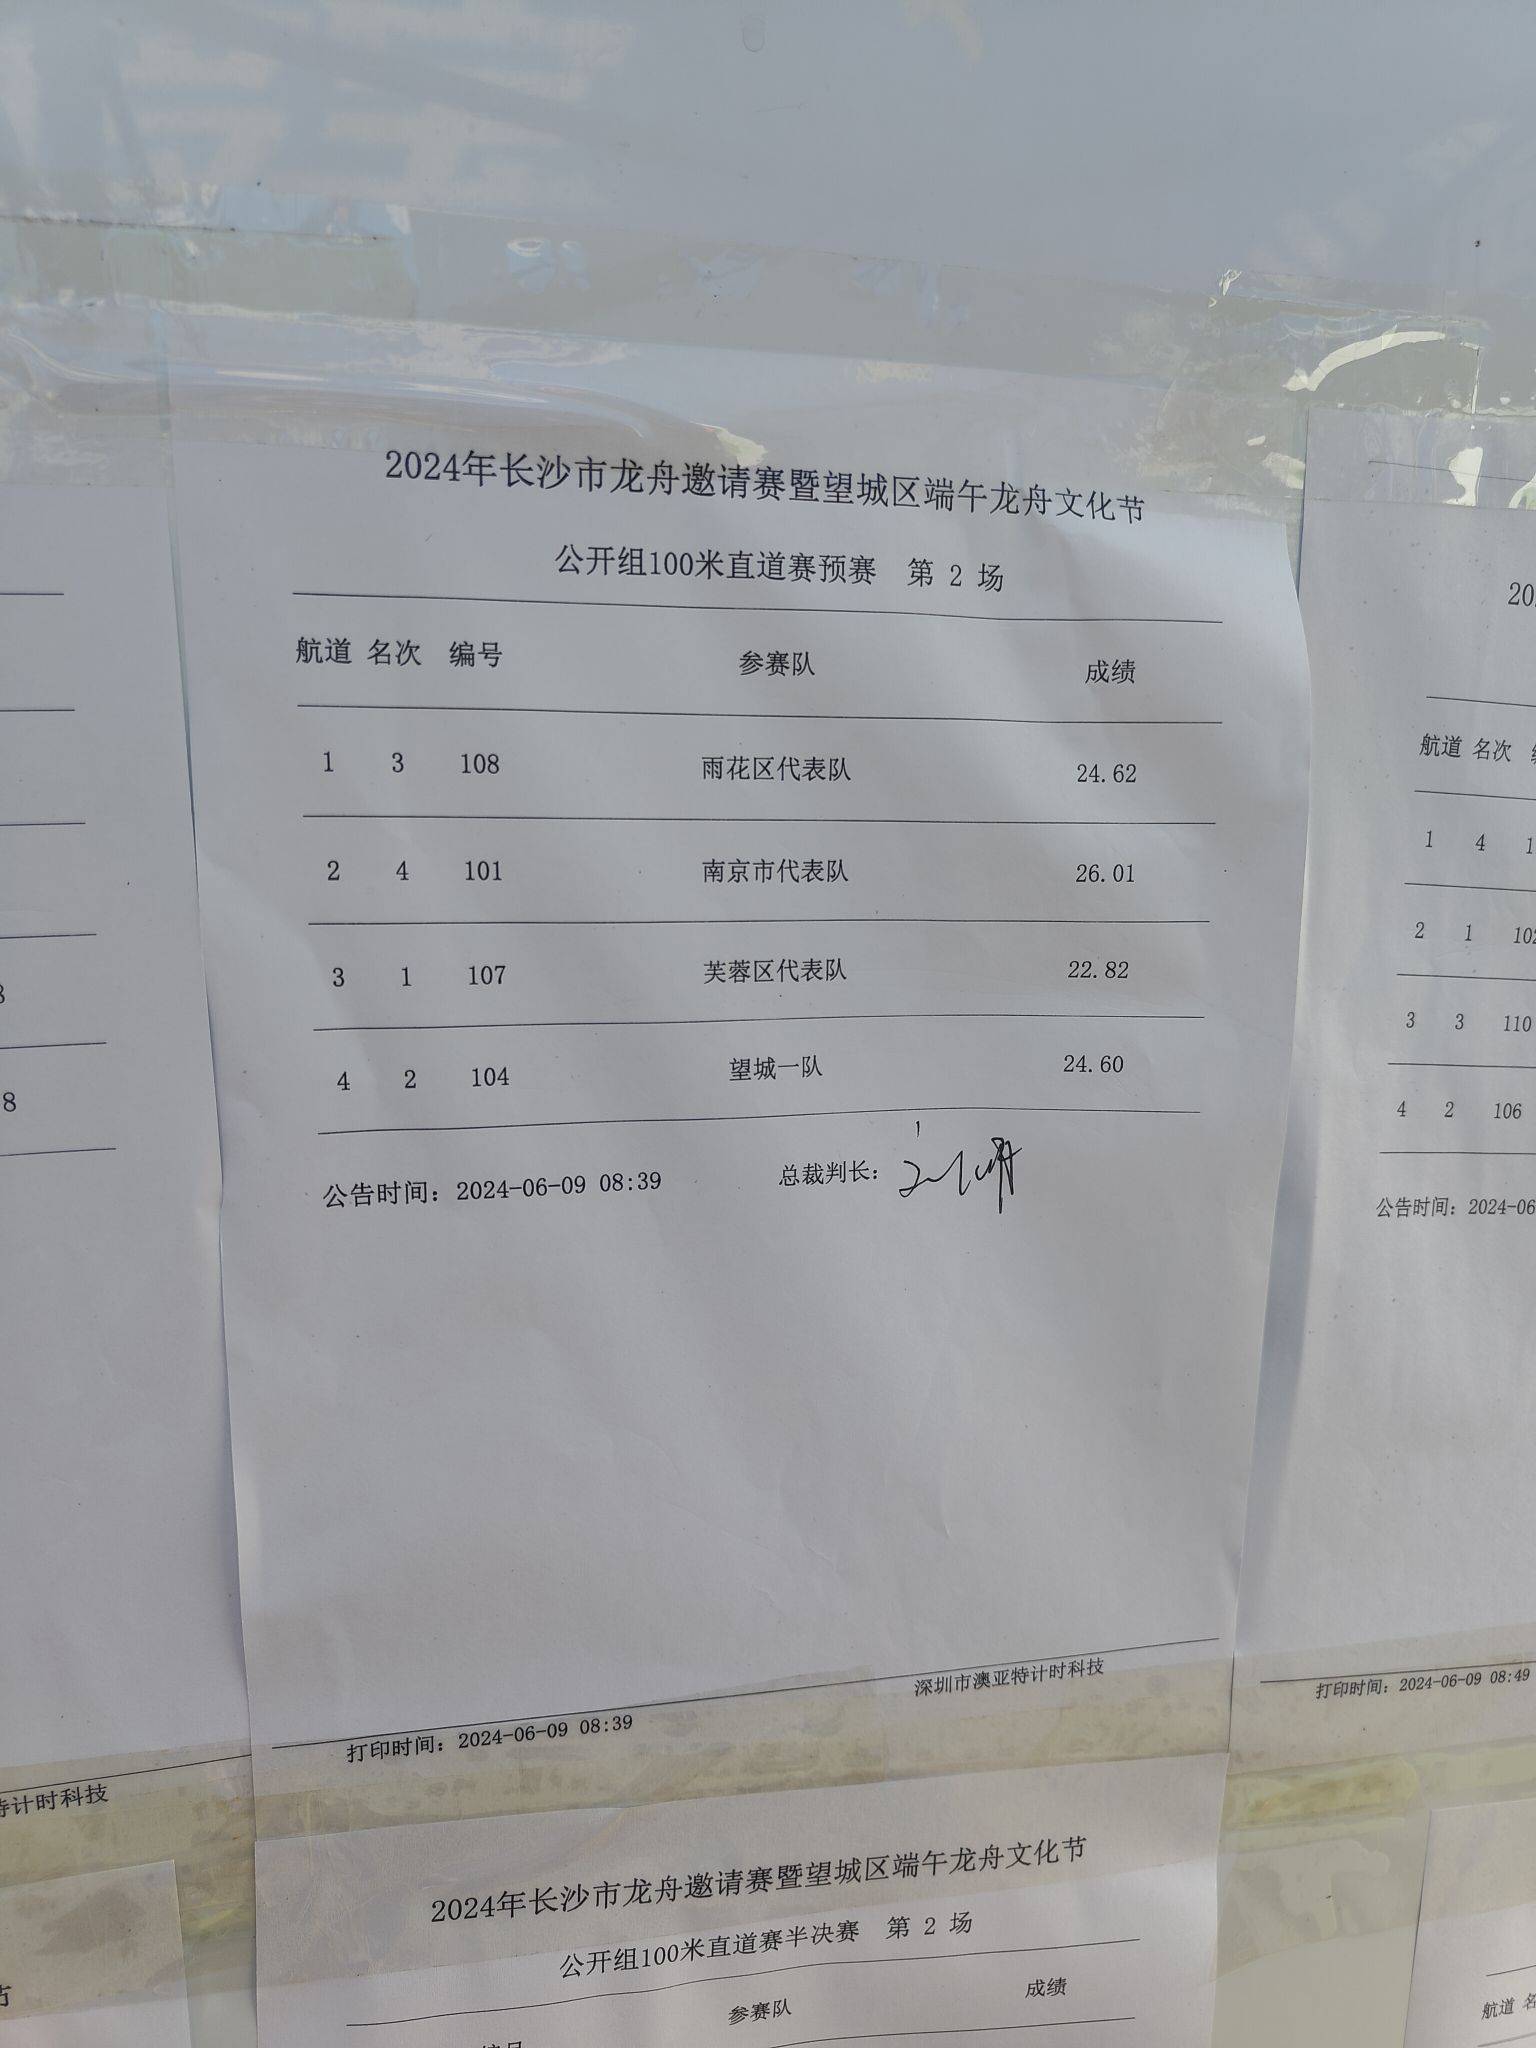 2024年长沙市龙舟邀请赛暨望城区端午龙舟文化节
公开组100米直道赛预赛 第 2 场
航道 名次 编号 参赛队 成绩
1 3 108 雨花区代表队 24.62
2 4 101 南京市代表队 26.01
3 1 107 芙蓉区代表队 22.82
4 2 104 望城一队 24.60
公告时间：2024-06-09 08:39 总裁判长：
深圳市澳亚特计时科技
打印时间：2024-06-09 08:39
2024年长沙市龙舟邀请赛暨望城区端午龙舟文化节
公开组100米直道赛半决赛 第 2 场
参赛队 成绩
8
8
特计时科技
节
20
航道 名次
1 4 1
2 1 102
3 3 110
4 2 106
公告时间：2024-06
打印时间：2024-06-09 08:49
航道 名